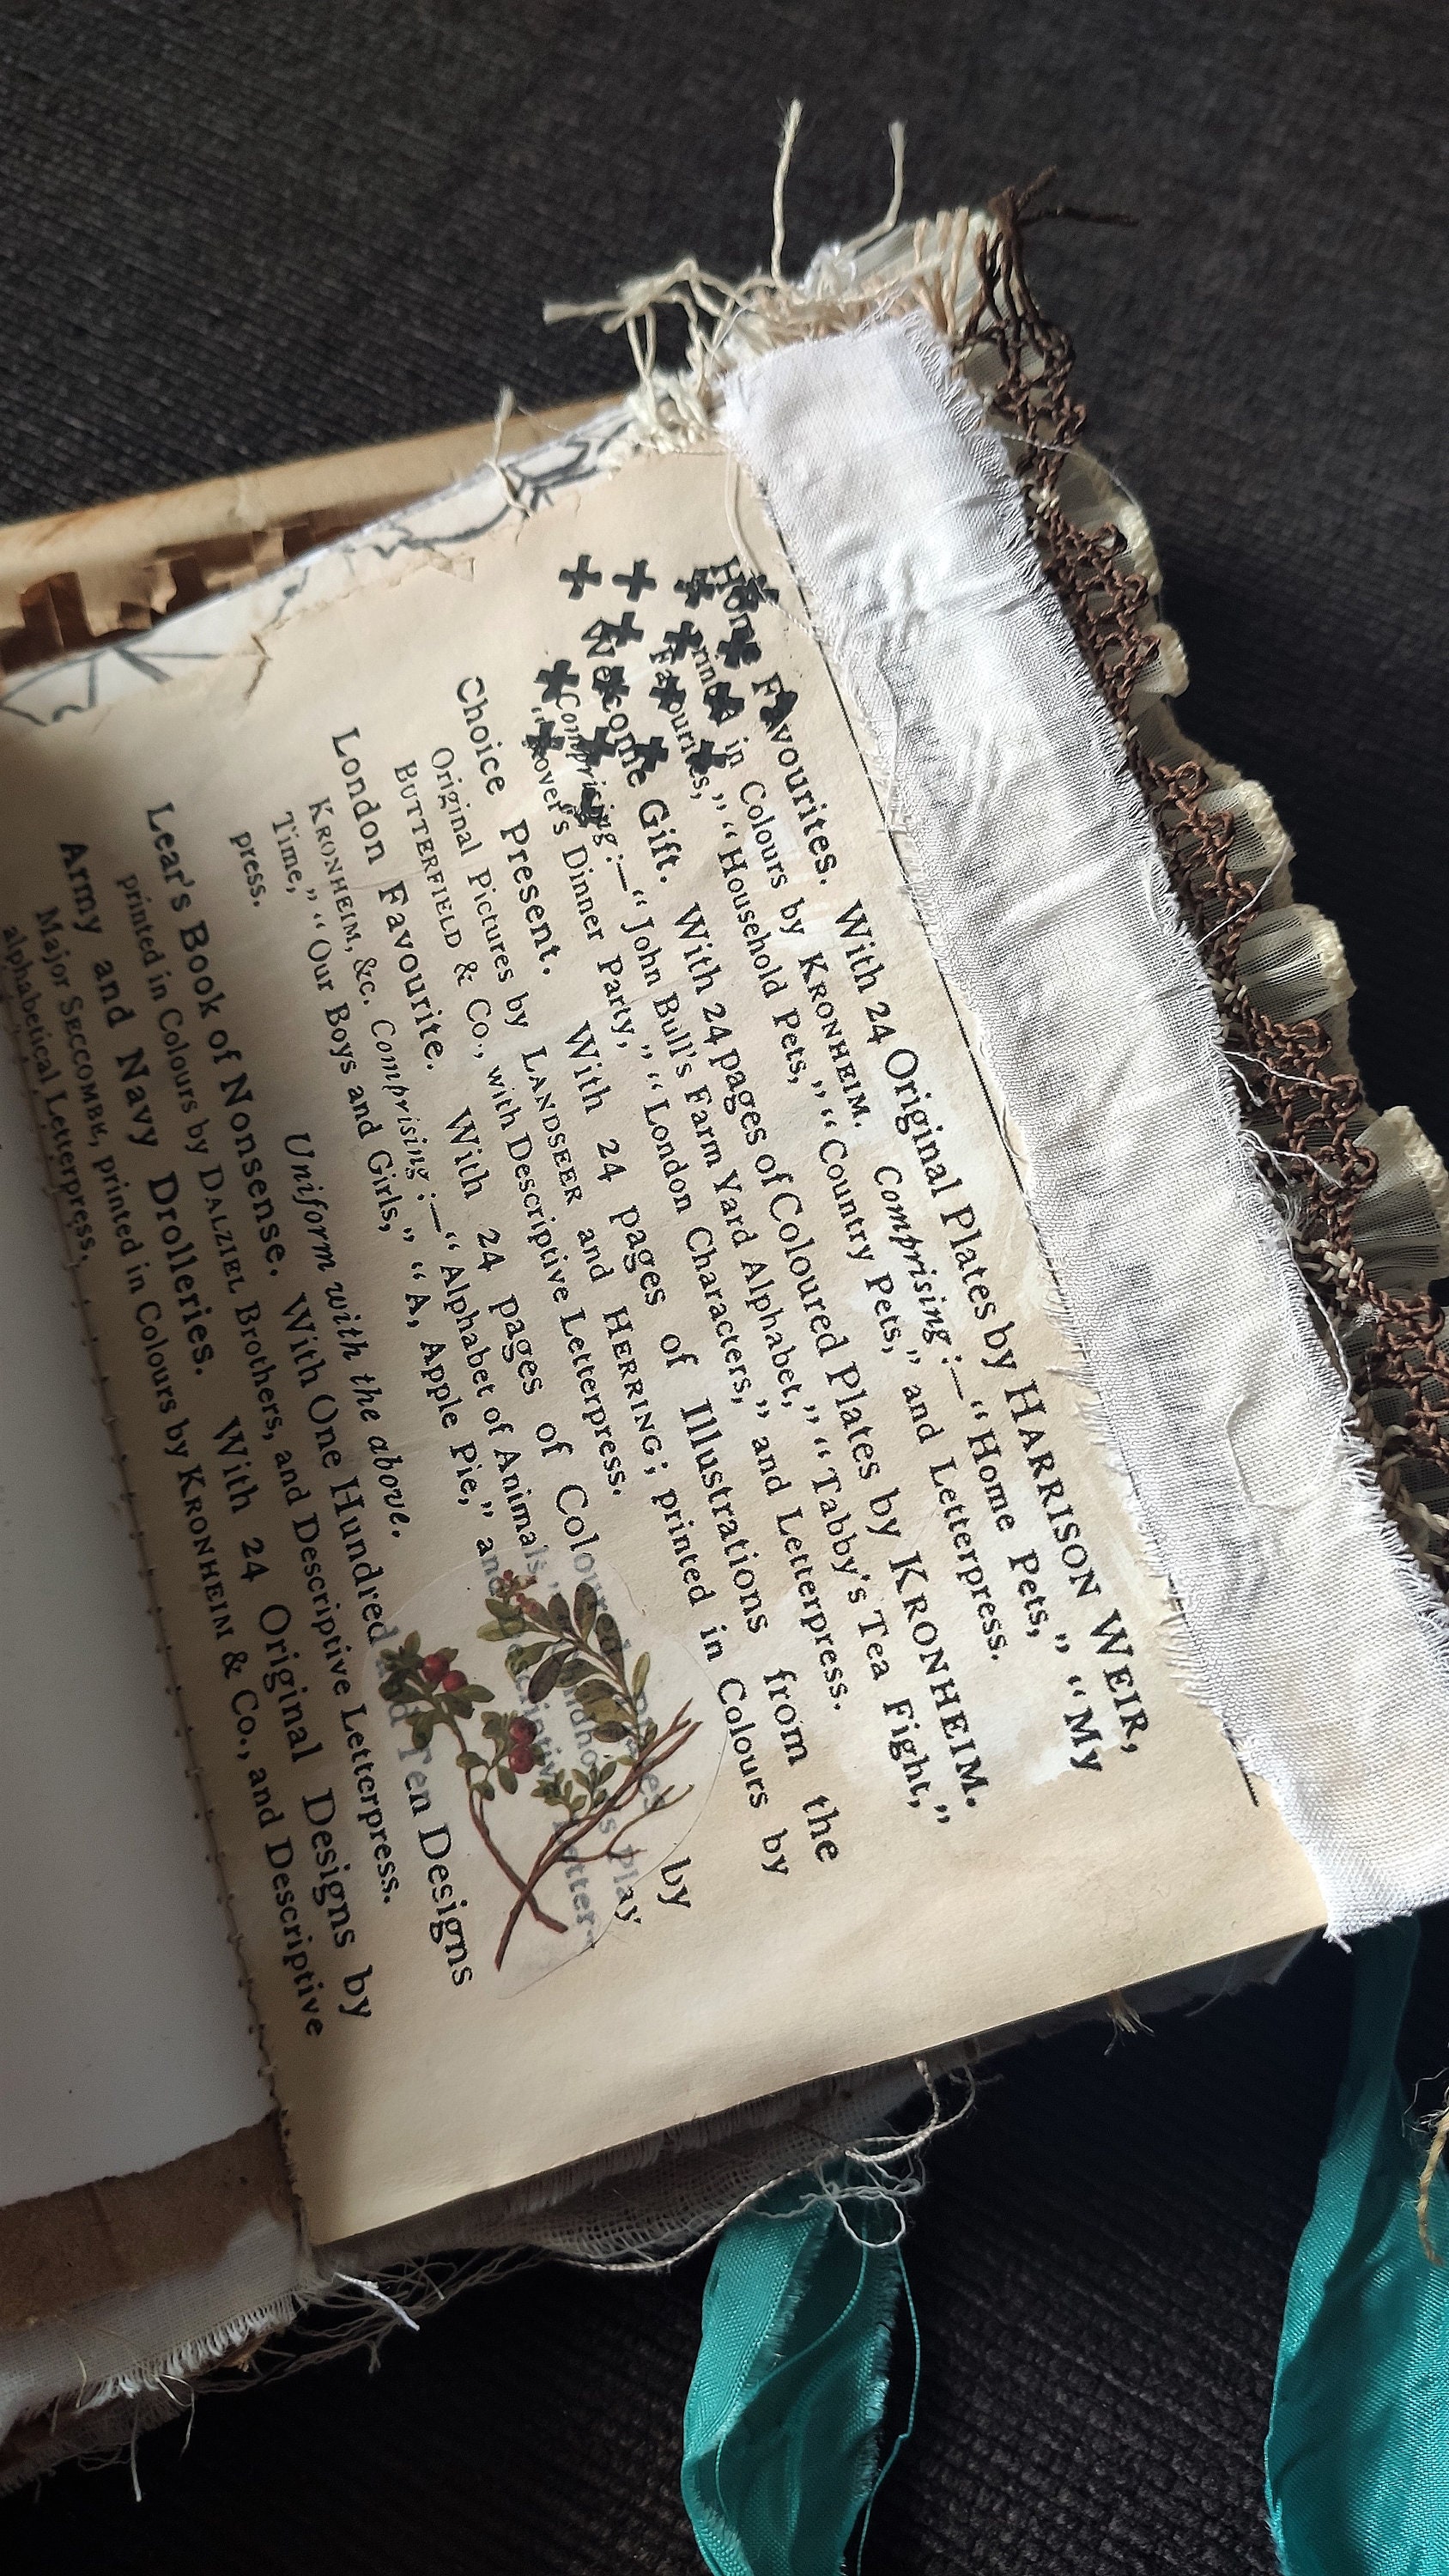 Home Favourites. With 24 Original Plates by HARRISON WEIR,
Printed in Colours by KRONHEIM. Comprising:—“Home Pets,” “My
Favourites,” “Household Pets,” “Country Pets,” and Letterpress.
Welcome Gift. With 24 pages of Coloured Plates by KRONHEIM.
Comprising:—“John Bull's Farm Yard Alphabet,” “Tabby's Tea Fight,”
“Rover's Dinner Party,” “London Characters,” and Letterpress.
Choice Present. With 24 pages of Illustrations from the
Original Pictures by LANDSEER and HERRING; printed in Colours by
BUTTERFIELD & Co., with Descriptive Letterpress.
London Favourite. With 24 pages of Coloured Plates by
KRONHEIM, &c. Comprising:—“Alphabet of Animals,” “Childhood's Play
Time,” “Our Boys and Girls,” “A, Apple Pie,” and Descriptive Letter-
press.
Uniform with the above.
Lear's Book of Nonsense. With One Hundred and Ten Designs
printed in Colours by DALZIEL Brothers, and Descriptive Letterpress.
Army and Navy Drolleries. With 24 Original Designs by
Major SECCOMBE, printed in Colours by KRONHEIM & Co., and Descriptive
alphabetical Letterpress.